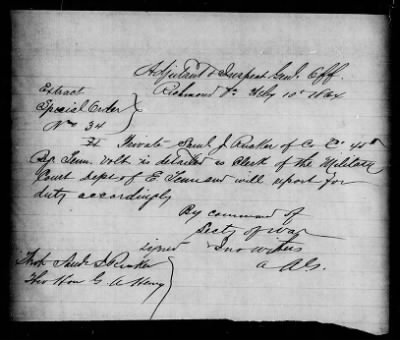 Adjutant & Inspect Genl. Off.
Richmond Va Feby 10th 1864
Extract
Special Order
No 34
Private Saml. J. Rucker of Co C. 45th
Reg Tenn. Volt is detailed as Clerk of the Military
Court dept of E Tenn and will report for
duty accordingly
By command of
Secty of War
signed Jno Withers
A A G.
Saml. J Rucker
Hon G. A Henry